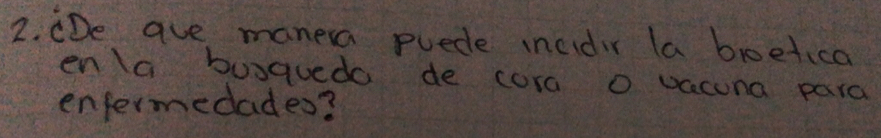 2. ¿De que manera puede incidir la bioetica
en la busqueda de cura o vacuna para
enfermedades?